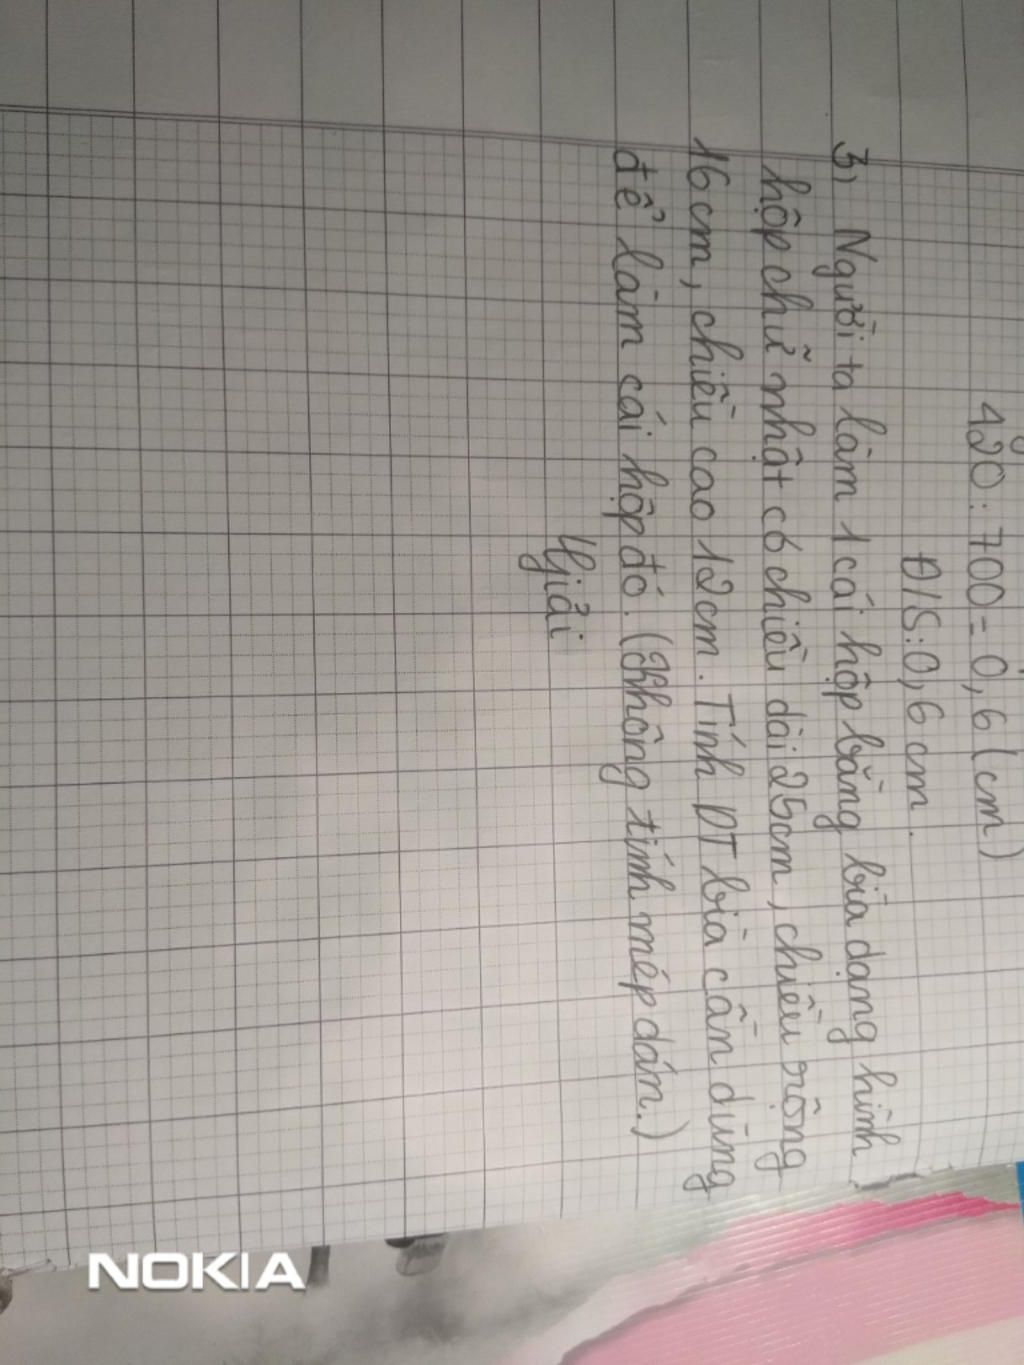 420 : 700 = 0,6 (cm)
Đ/S: 0,6 cm.
3) Người ta làm 1 cái hộp bằng bìa dạng hình
hộp chữ nhật có chiều dài 25cm, chiều rộng
16 cm, chiều cao 12cm. Tính DT bìa cần dùng
để làm cái hộp đó. (Không tính mép dán.)
Giải
NOKIA